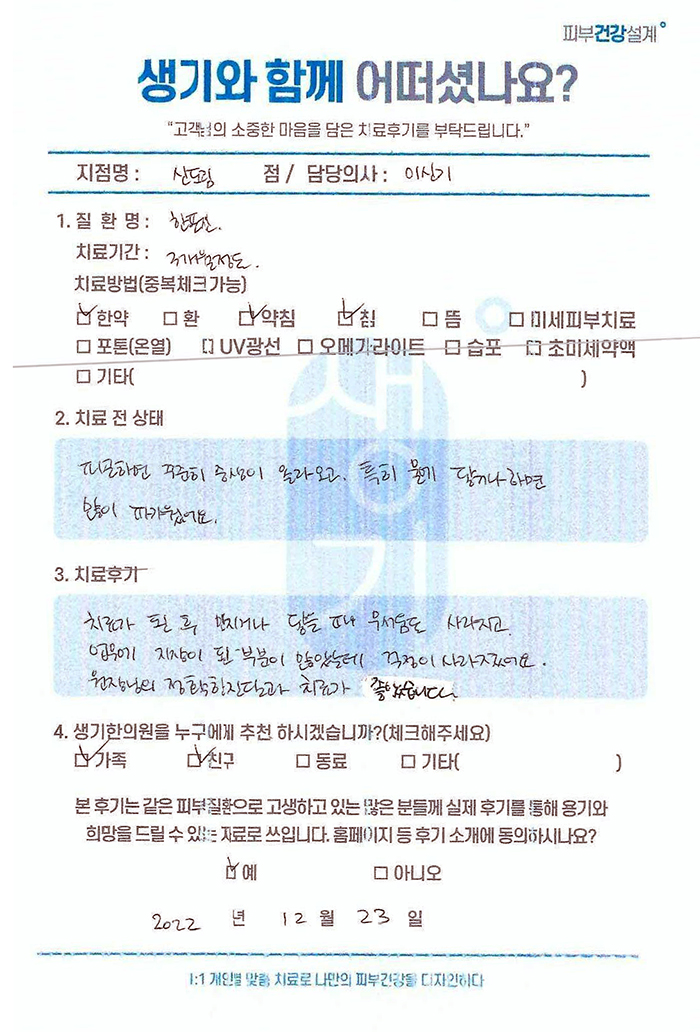 피부건강설계
생기와 함께 어떠셨나요?
"고객님의 소중한 마음을 담은 치료후기를 부탁드립니다."
지점명 : 신도림 점 / 담당의사 : 이신기
1. 질 환 명 : 한포진.
치료기간 : 3개월정도.
치료방법(중복체크가능)
☑ 한약 □ 환 ☑ 약침 ☑ 침 □ 뜸 □ 미세피부치료
□ 포톤(온열) □ UV광선 □ 오메가라이트 □ 습포 □ 초미세약액
□ 기타( )
2. 치료 전 상태
피곤하면 꾸준히 증상이 올라오고. 특히 물기 닿거나하면
많이 따가웠어요.
3. 치료후기
치료가 된 후 만지거나 닿을 때나 무서움도 사라지고.
업무에 지장이 된 부분이 많았는데 걱정이 사라졌어요.
원장님의 정확한진단과 치료가 좋았습니다.
4. 생기한의원을 누구에게 추천 하시겠습니까?(체크해주세요)
☑ 가족 ☑ 친구 □ 동료 □ 기타( )
본 후기는 같은 피부질환으로 고생하고 있는 많은 분들께 실제 후기를 통해 용기와
희망을 드릴 수 있는 자료로 쓰입니다. 홈페이지 등 후기 소개에 동의하시나요?
☑ 예 □ 아니오
2022 년 12 월 23 일
1:1 개인별 맞춤 치료로 나만의 피부건강을 디자인하다
생기